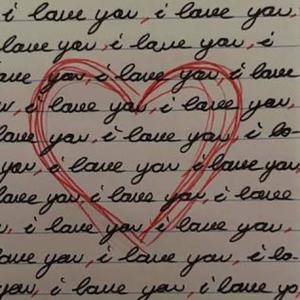 i love you, i love you,
love you, i love you, i
love you, i love you, i love
i love you, i love you,
love you, i love you, i lo
you, i love you, i love you,
love you, i love you, i love
i love you, i love you,
love you, i love you, i lo
you, i love you, i love yo